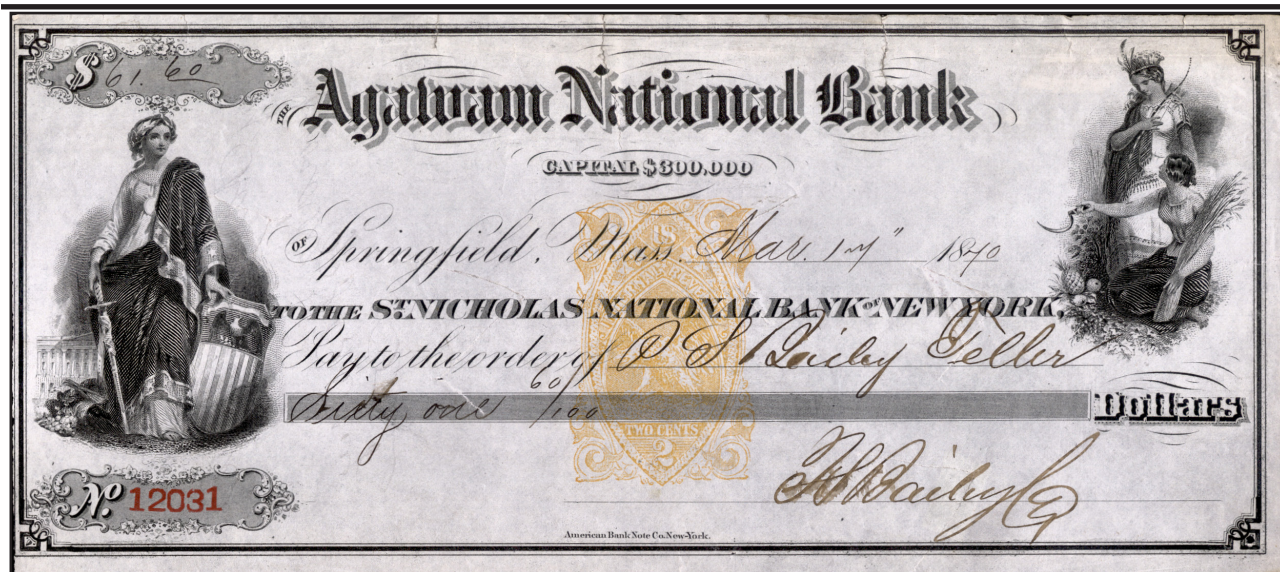 $ 61.60
THE Agawam National Bank
CAPITAL $300,000
OF Springfield, Mass. Mar. 17" 1870
TO THE ST. NICHOLAS NATIONAL BANK OF NEW YORK,
Pay to the order of O S Bailey Teller
Sixty one 60/100 Dollars
U.S.
TWO CENTS
2
No. 12031
Bailey
American Bank Note Co. New-York.